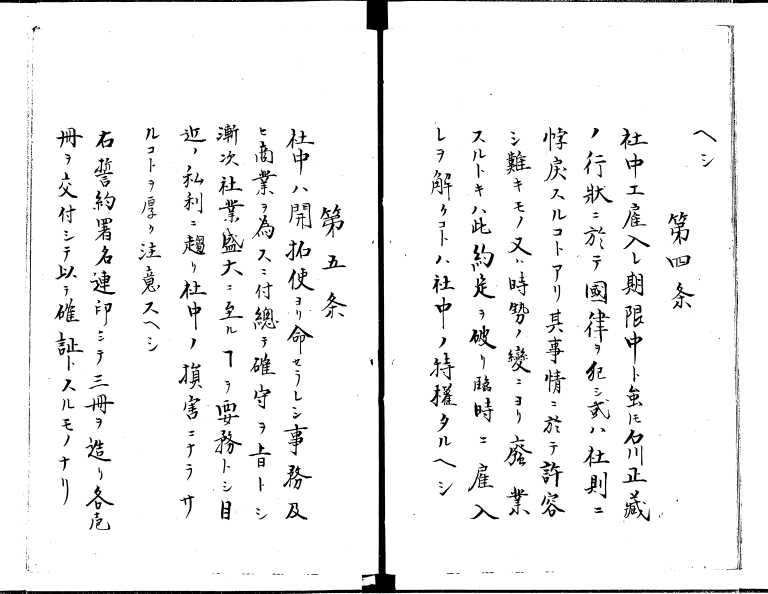 ヘシ
第四条
社中エ雇入レ期限中ト雖モ石川正蔵
ノ行狀ニ於テ國律ヲ犯シ或ハ社則ニ
悖戻スルコトアリ其事情ニ於テ許容
シ難キモノ又ハ時勢ノ變ニヨリ廢業
スルトキハ此約定ヲ破リ臨時ニ雇入
レヲ解クコトハ社中ノ特權タルヘシ
第五条
社中ハ開拓使ヨリ命セラレシ事務及
ヒ商業ヲ為スニ付總テ確守ヲ旨トシ
漸次社業盛大ニ至ルヿヲ要務トシ目
近ノ私利ニ趨リ社中ノ損害ニナラサ
ルコトヲ厚ク注意スヘシ
右誓約署名連印シテ三冊ヲ造リ各壱
冊ヲ交付シテ以テ確証トスルモノナリ